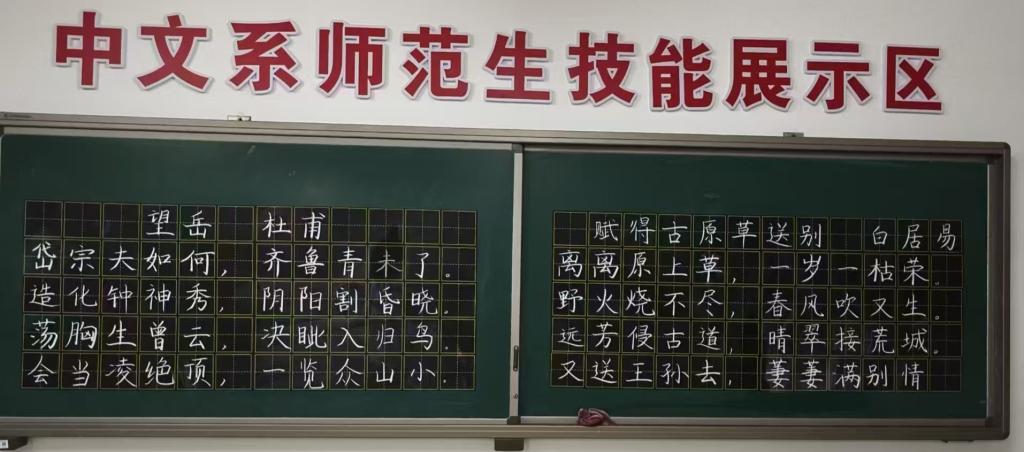 中文系师范生技能展示区
望岳 杜甫
岱宗夫如何，齐鲁青未了。
造化钟神秀，阴阳割昏晓。
荡胸生曾云，决眦入归鸟。
会当凌绝顶，一览众山小.
赋得古原草送别 白居易
离离原上草，一岁一枯荣。
野火烧不尽，春风吹又生。
远芳侵古道，晴翠接荒城。
又送王孙去，萋萋满别情